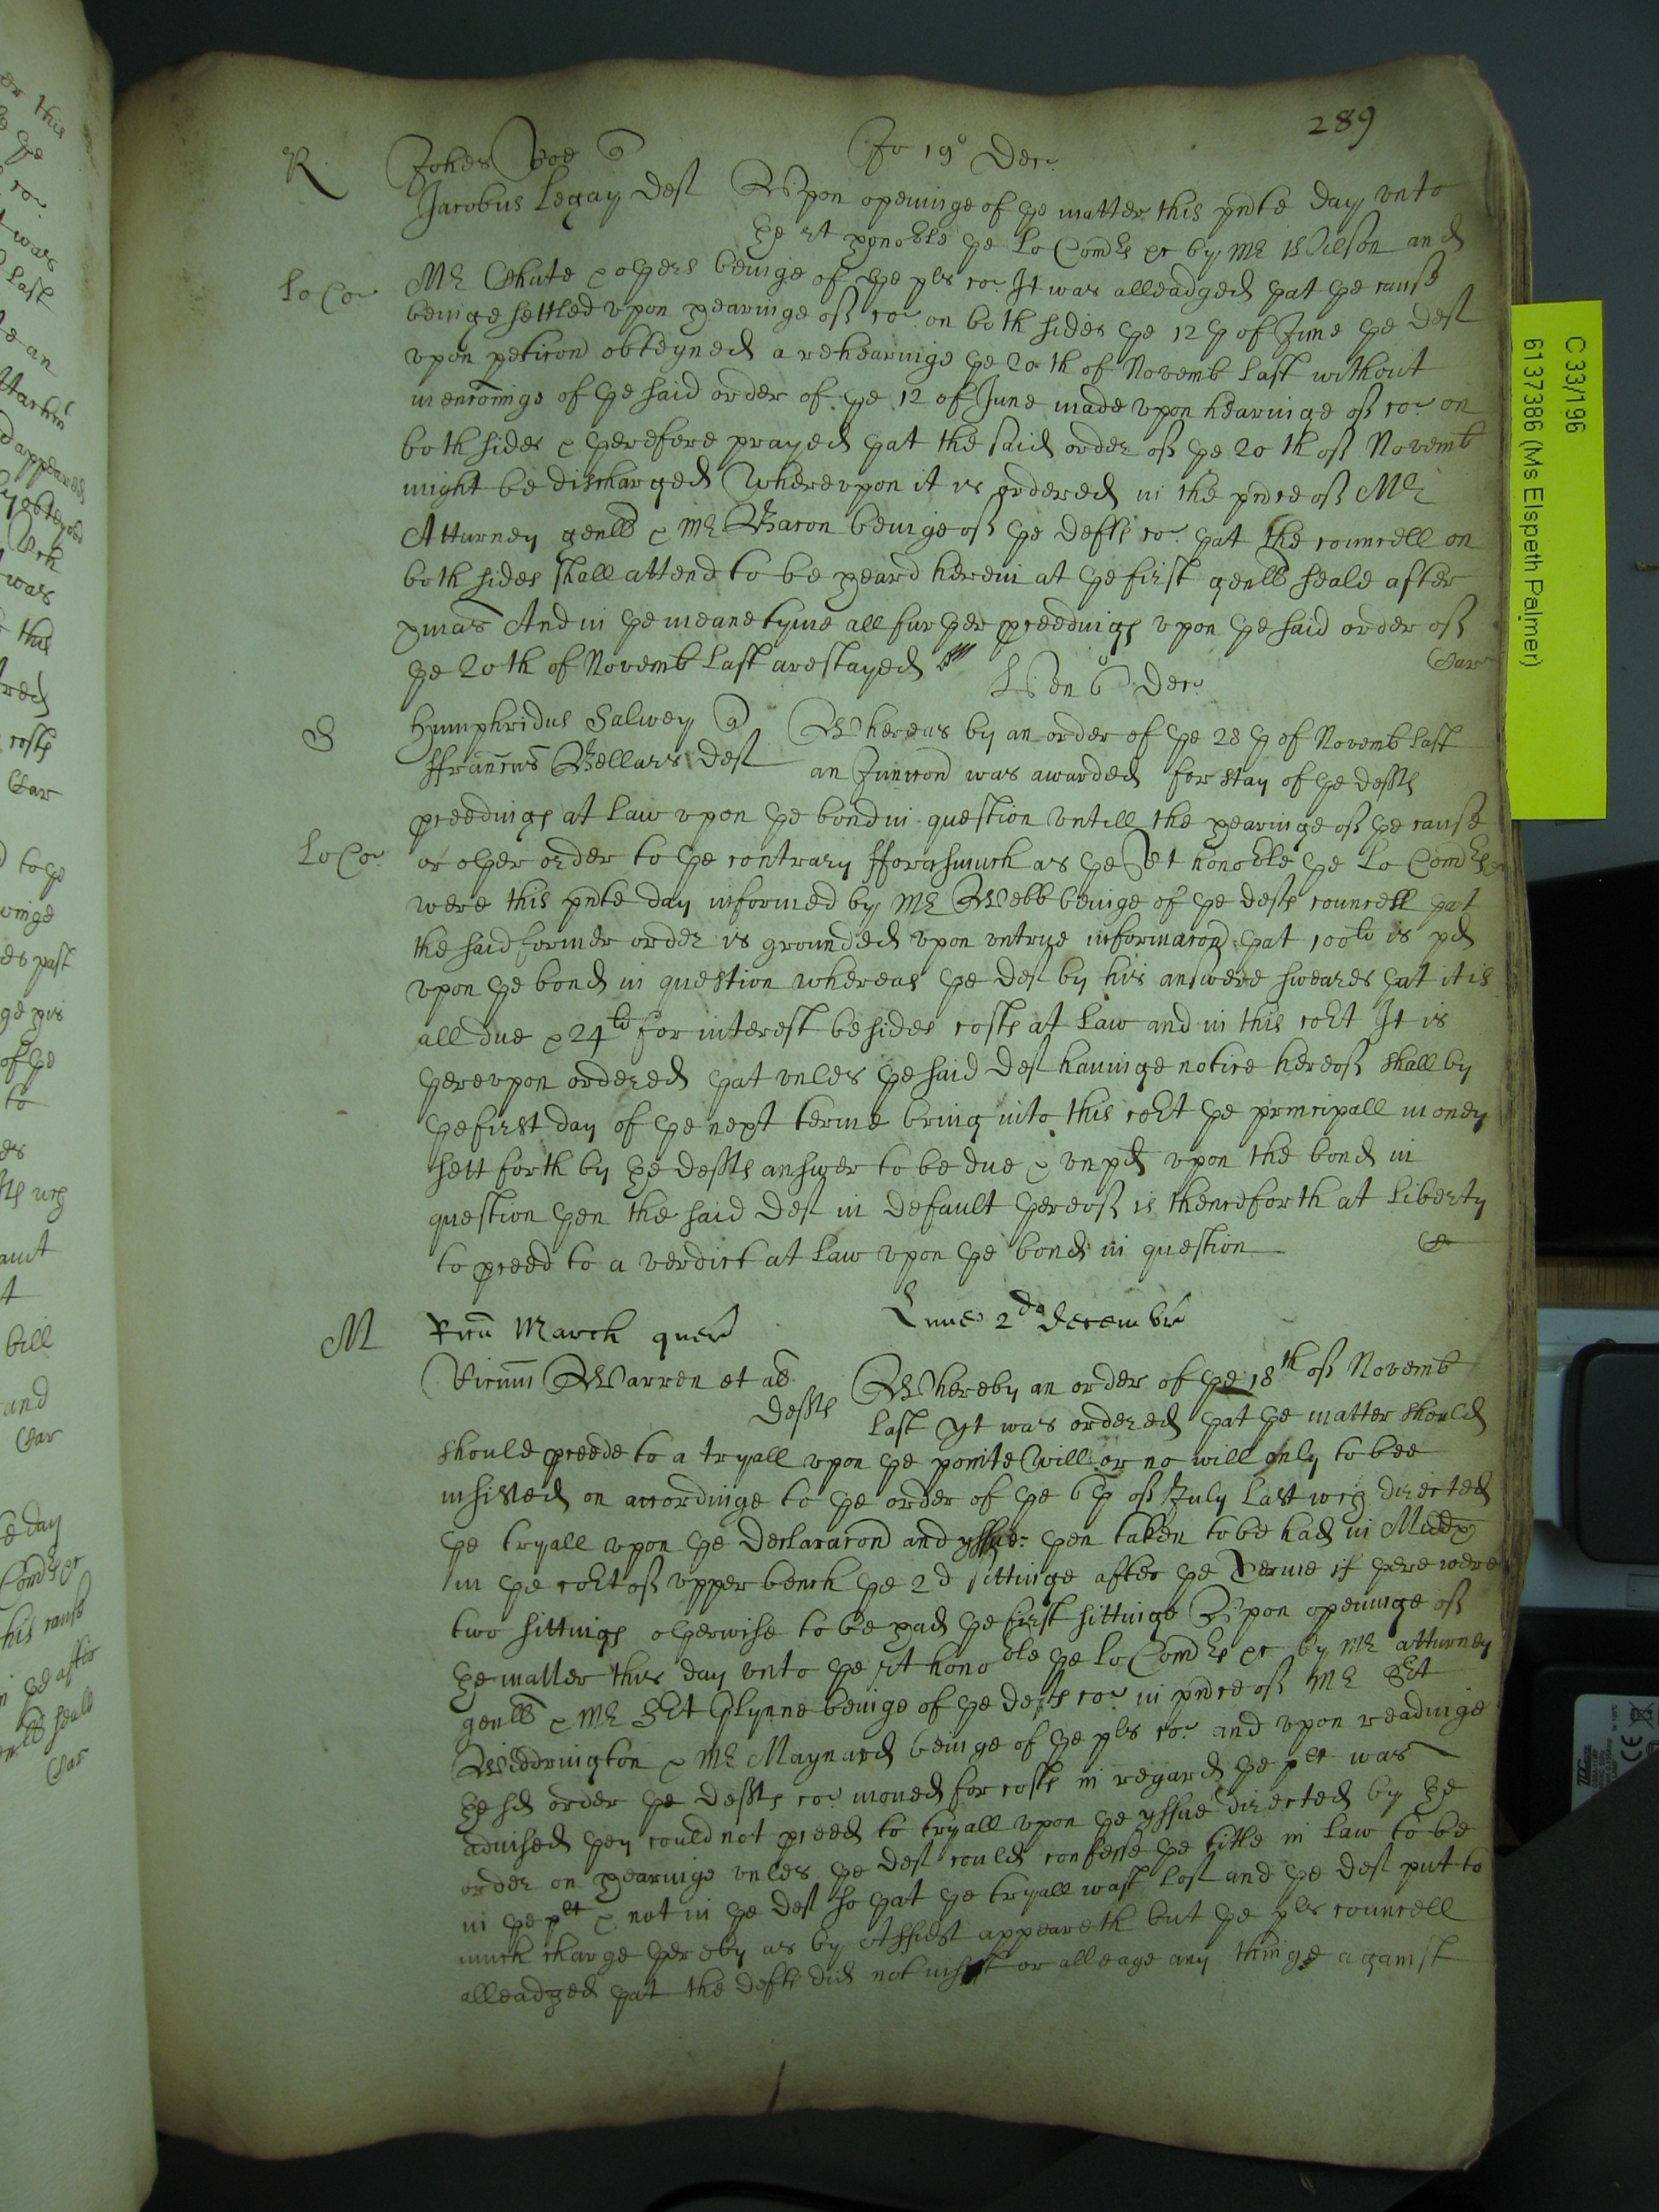 289
R Johes Roe q Jo 19º Decr
Jacobus Legay Deft Vpon openinge of ye matter this pnte day vnto
ye rt honoble ye Lo Comrs &c by Mr Wilson and
Lo Cor Mr Chute & others beinge of ye pls cor It was alleadged yat ye cause
beinge settled vpon hearinge of cor on both sides ye 12 th of June ye Deft
vpon peticon obteyned a rehearinge ye 20 th of Novemb last without
mencioninge of ye said order of ye 12 of June made vpon hearinge of cor on
both sides & therefore prayed yat the said order of ye 20 th of Novemb
might be discharged Wherevpon it is ordered in the pnce of Mr
Atturney genll & Mr Bacon beinge of ye defts cor yat the councell on
both sides shall attend to be heard herein at ye first genll seale after
xmas And in ye meane tyme all further pceedings vpon ye said order of
ye 20 th of Novemb last are stayed
Car
Ven 6º Decr
S Humphridus Salwey q Whereas by an order of ye 28 th of Novemb last
ffrancus Bellars Deft an Iniuncon was awarded for stay of ye defts
pceedings at law vpon ye bond in question vntill the hearinge of ye cause
Lo Cor or other order to ye contrary fforasmuch as ye Rt honoble ye Lo Comrs &c
were this pnte day informed by Mr Webb beinge of ye defts councell yat
the said former order is grounded vpon vntrue informacon yat 100li is pd
vpon ye bond in question whereas ye deft by his answere sweares yat it is
all due & 24li for interest besides costs at law and in this cort It is
therevpon ordered yat vnles ye said Deft hauinge notice hereof shall by
ye first day of ye next terme bring into this cort ye principall money
sett forth by ye defts answer to be due & vnpd vpon the bond in
question then the said Deft in default thereof is thenceforth at liberty
to pceed to a verdict at law vpon ye bond in question
Lune 2do decembr
M Ricu March quer
Ricum Warren et al Whereby an order of ye 18th of Novemb
defts last yt was ordered yat ye matter should
should pceede to a tryall vpon ye pointe Will or no will only to bee
insisted on accordinge to ye order of ye 6 th of July last wch directed
ye tryall vpon ye declaracon and yssue then taken to be had in Middx
in ye cort of vpper bench ye 2d sittinge after ye Terme if there were
two sittings otherwise to be had ye first sittinge Vpon openinge of
ye matter this day vnto ye rt honoble ye Lo Comrs &c by Mr atturney
genll & Mr Srt Glynne beinge of ye defts cor in pnce of Mr Srt
Widdrington & Mr Maynard beinge of ye pls cor and vpon readinge
ye sd order ye defts cor moued for costs in regard ye plt was
aduised they could not pceed to tryall vpon ye yssue directed by ye
order on hearinge vnles ye deft could confesse ye title in law to be
in ye plt & not in ye deft so yat ye tryall was lost and ye deft put to
much charge thereby as by Affidt appeareth but ye pls councell
alleadged yat the defts did not insist or alleage any thinge against
C 33/196
6137386 (Ms Elspeth Palmer)